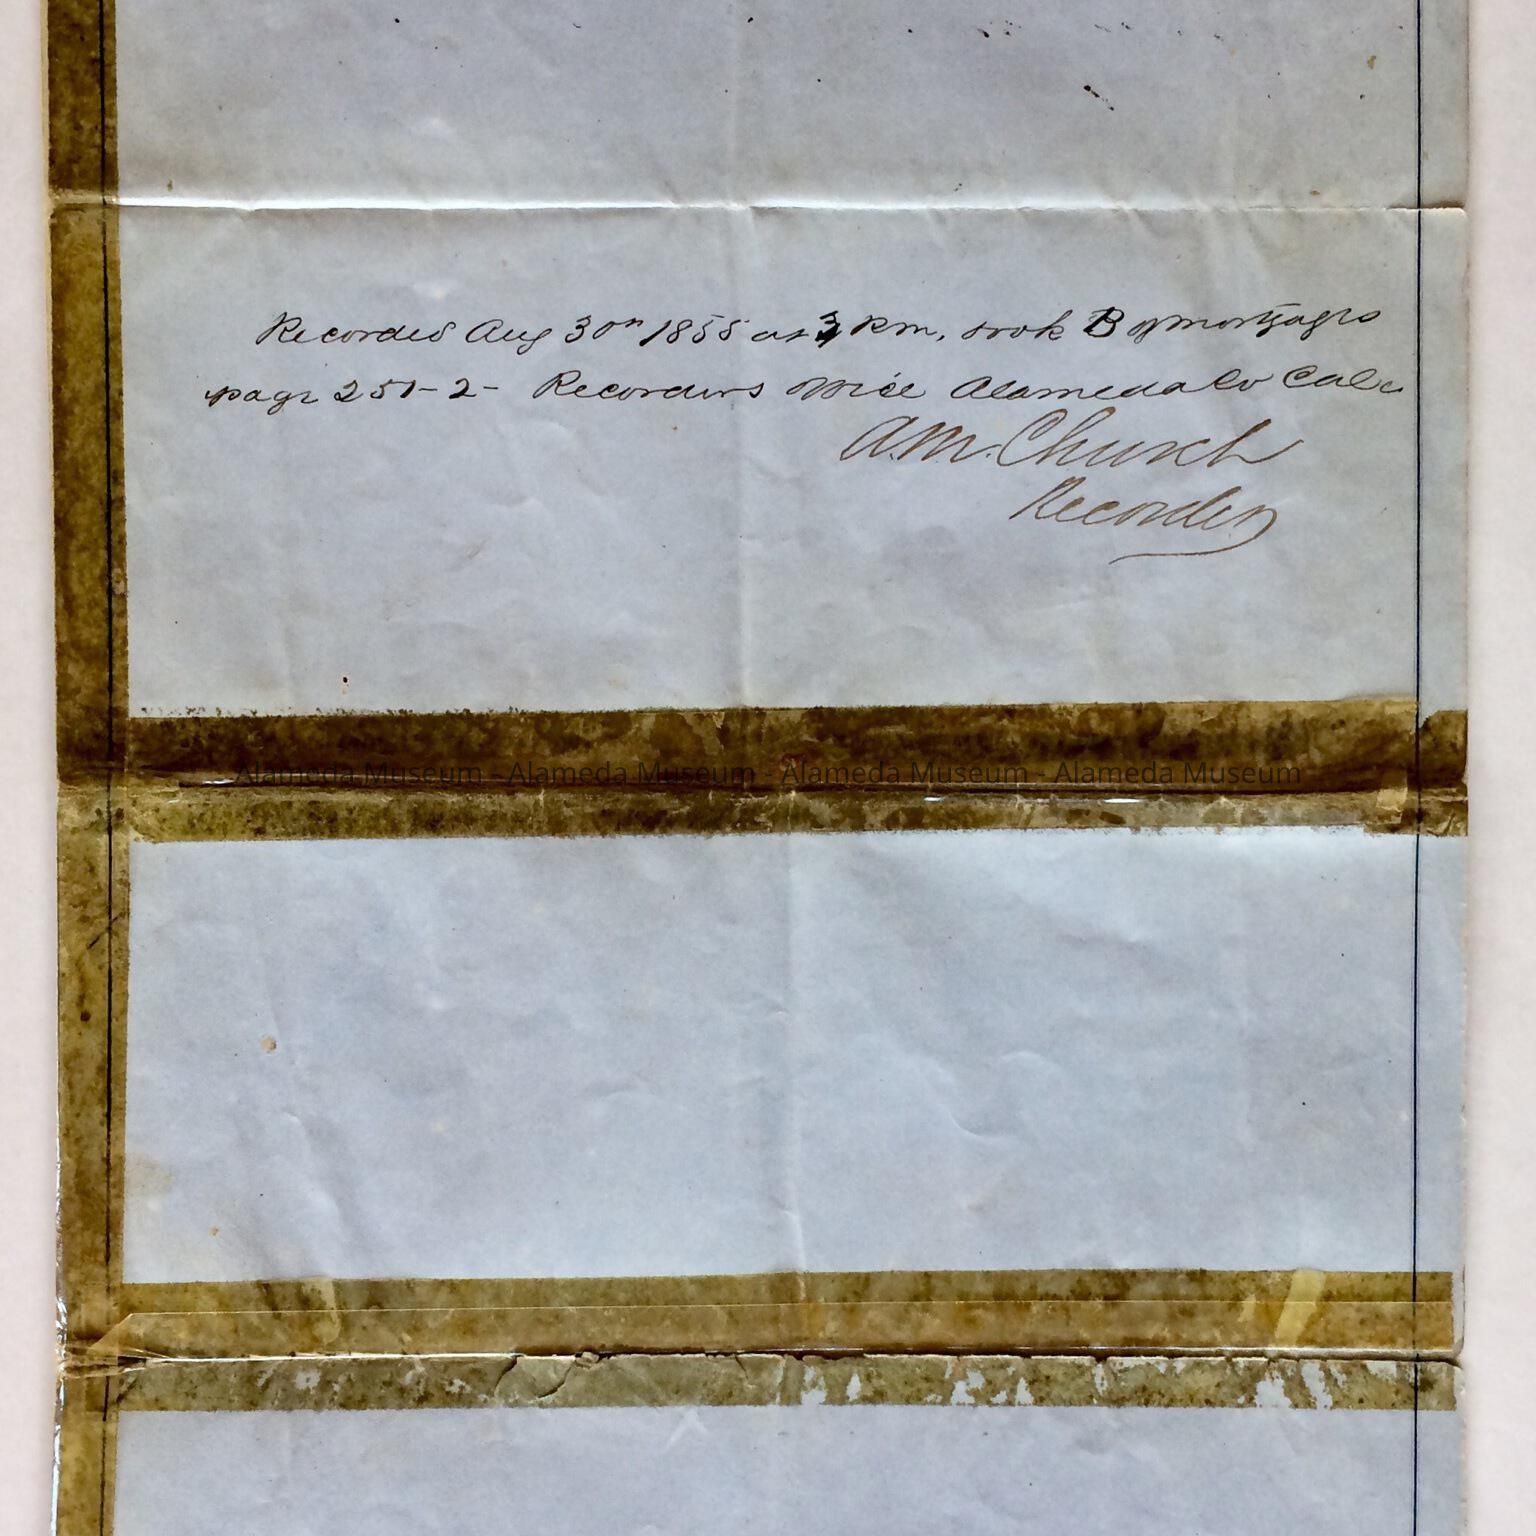 Recorded Aug 30th 1855 at 3 P.m. Book B of mortgages
page 251-2- Recorders Office Alameda Co Cala
A.M. Church
Recorder
Alameda Museum - Alameda Museum - Alameda Museum - Alameda Museum